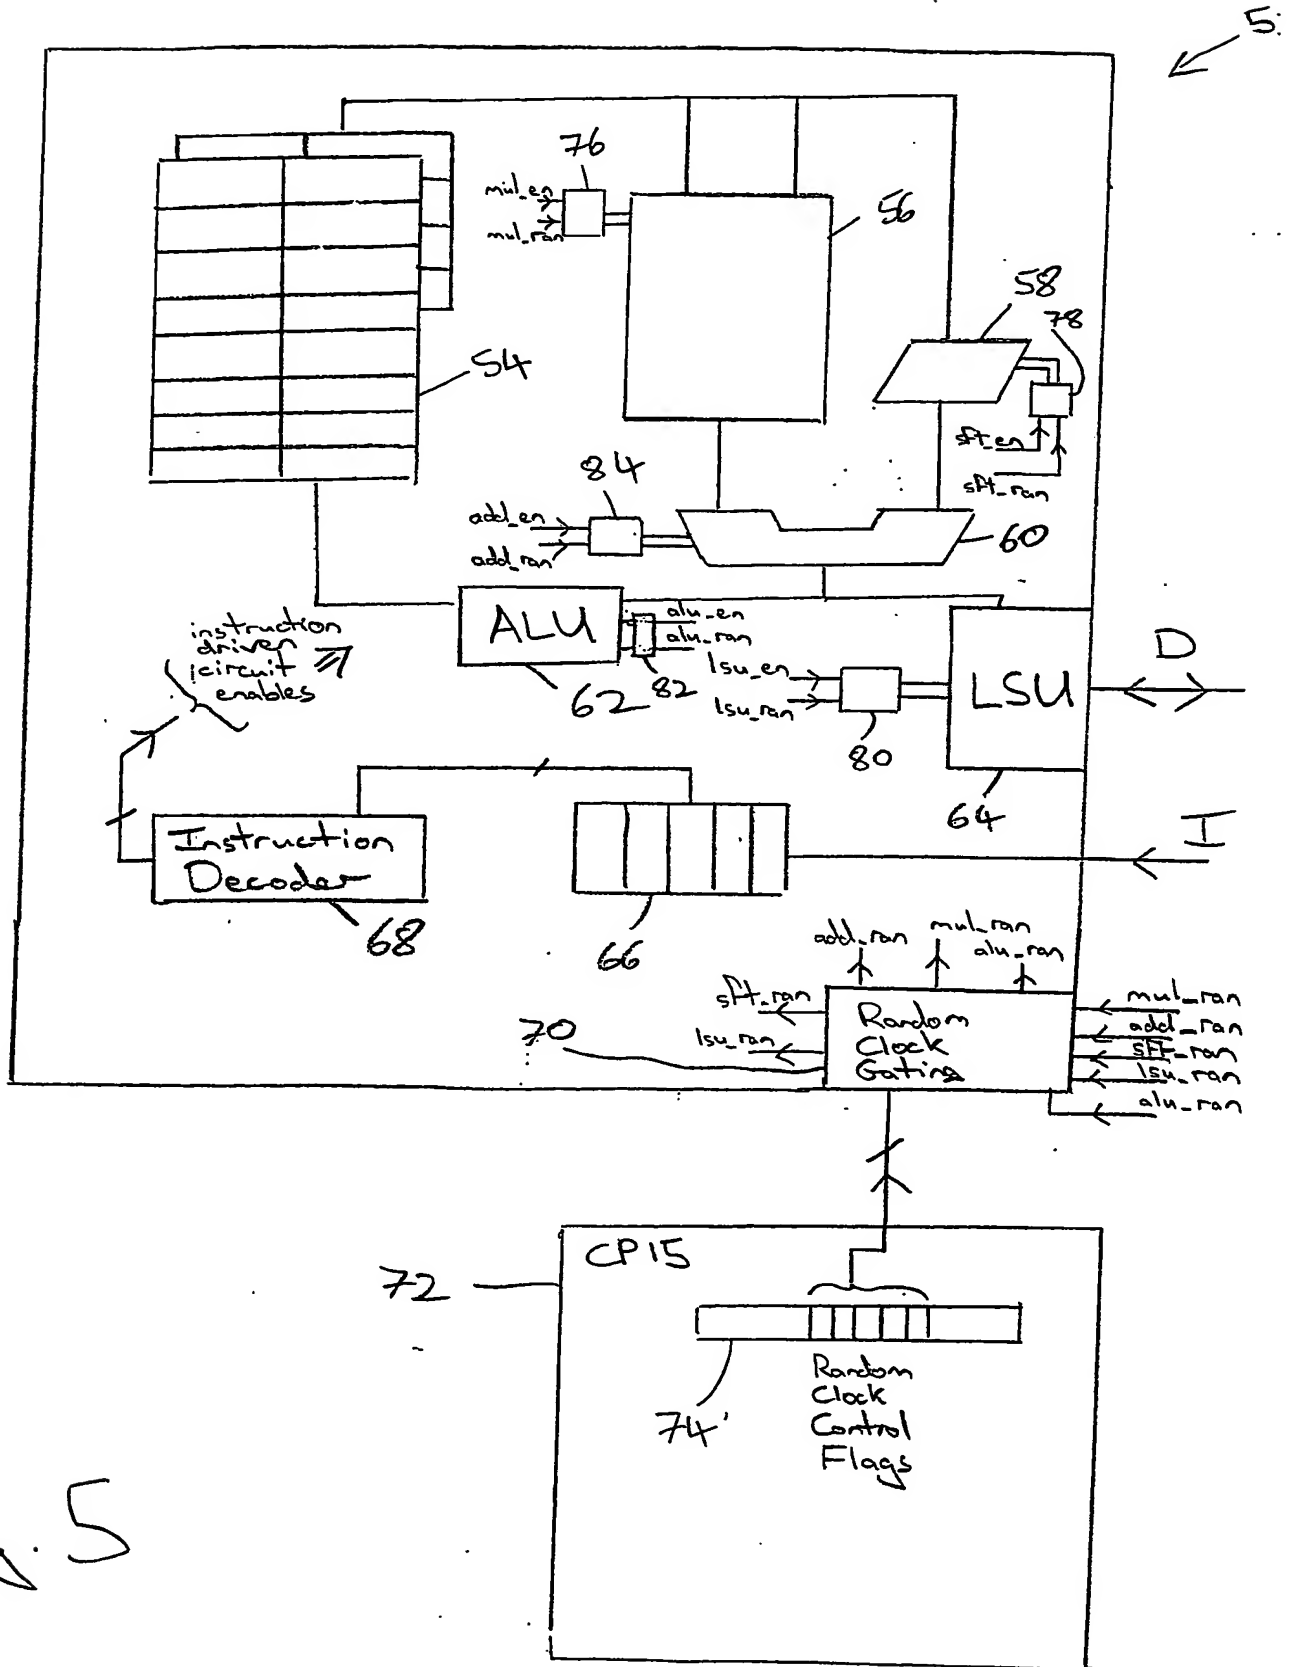 5
76
mul_en
mul_ran
56
58
78
54
sft_en
sft_ran
84
add_en
add_ran
60
ALU
alu_en
alu_ran
62
82
instruction
driven
circuit
enables
lsu_en
lsu_ran
80
LSU
64
D
I
Instruction
Decoder
68
66
add_ran
mul_ran
alu_ran
sft_ran
lsu_ran
70
Random
Clock
Gating
mul_ran
add_ran
sft_ran
lsu_ran
alu_ran
72
CP15
74
Random
Clock
Control
Flags
5